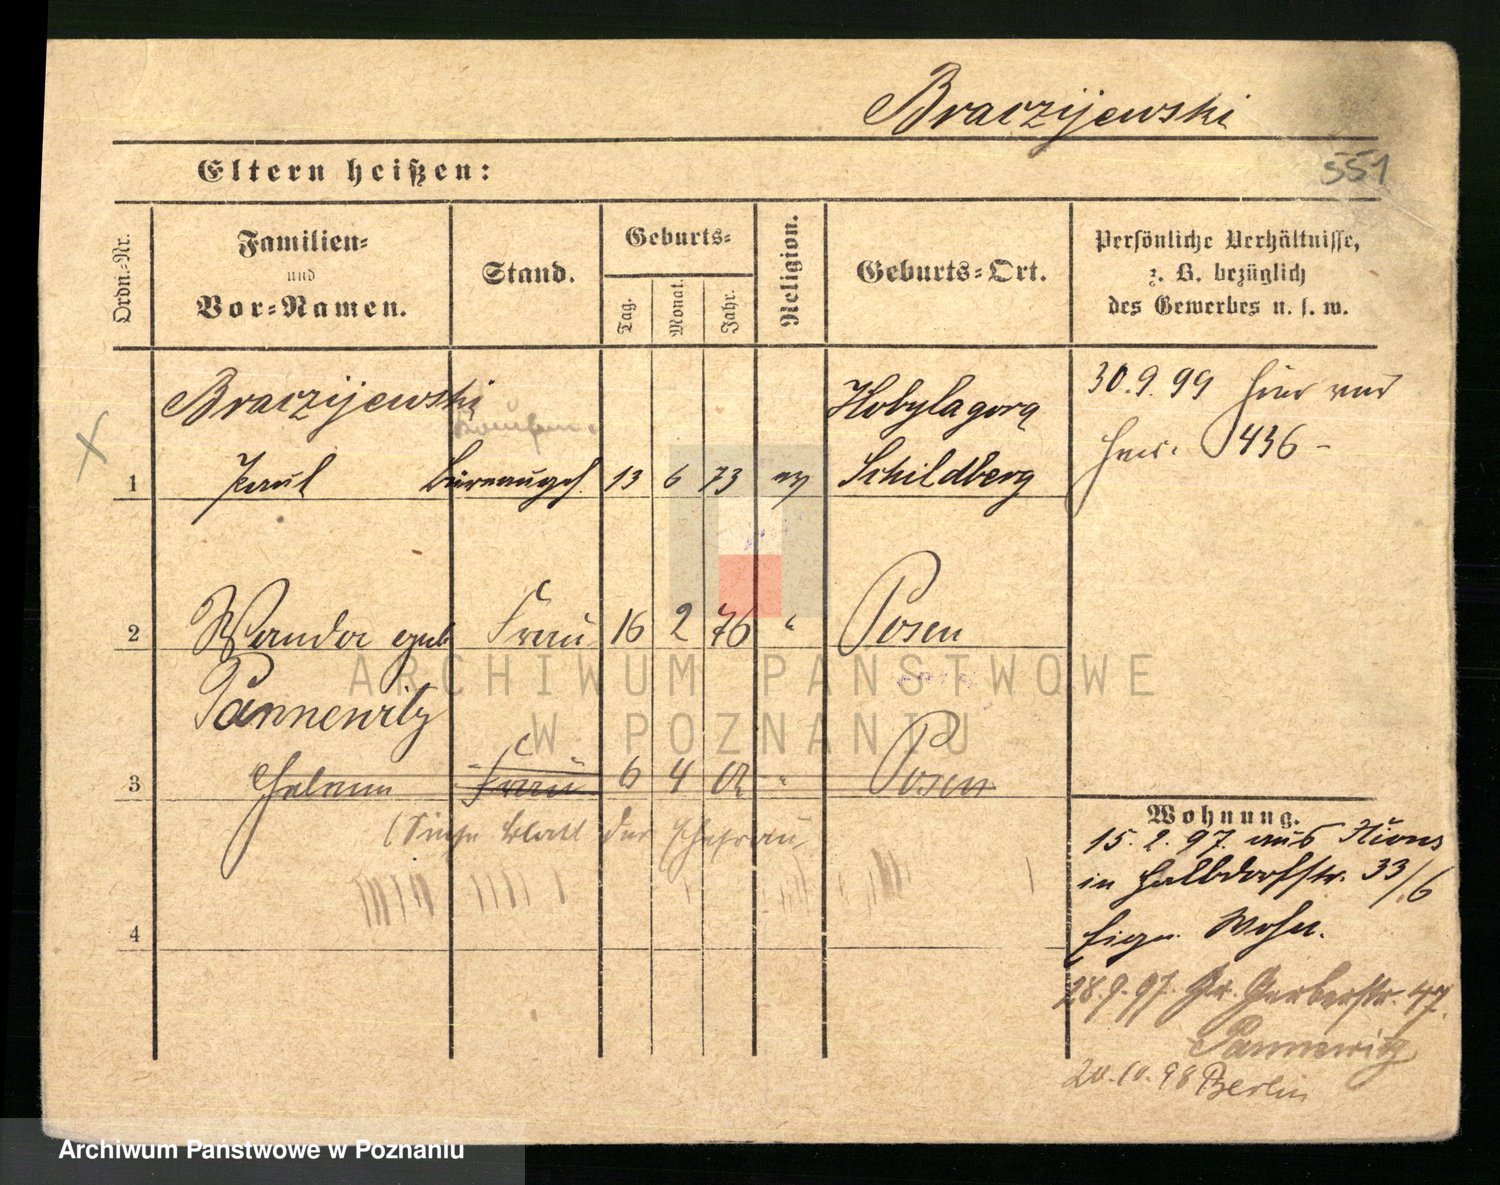 Braczijewski
551
Eltern heißen:
Ordn.-Nr.
Familien-
und
Vor-Namen.
Stand.
Geburts-
Tag.
Monat.
Jahr.
Religion.
Geburts-Ort.
Persönliche Verhältnisse,
z. B. bezüglich
des Gewerbes u. s. w.
Braczijewski
Kobylagora
30.9.99 hier
436 -
1 Paul 13 6 73 Schildberg
2 Wanda geb Frau 16 2 76 " Posen
Pannewitz
3 Frau 6 4 " Posen
(Siehe Blatt der Ehefrau
4
Wohnung.
15.2.97. aus
in Halbdorfstr. 33/6
Eig. Wohn.
28.9.97. Gr. Gerberstr. 47.
Pannewitz
20.10.98 Berlin
ARCHIWUM PAŃSTWOWE
W POZNANIU
Archiwum Państwowe w Poznaniu